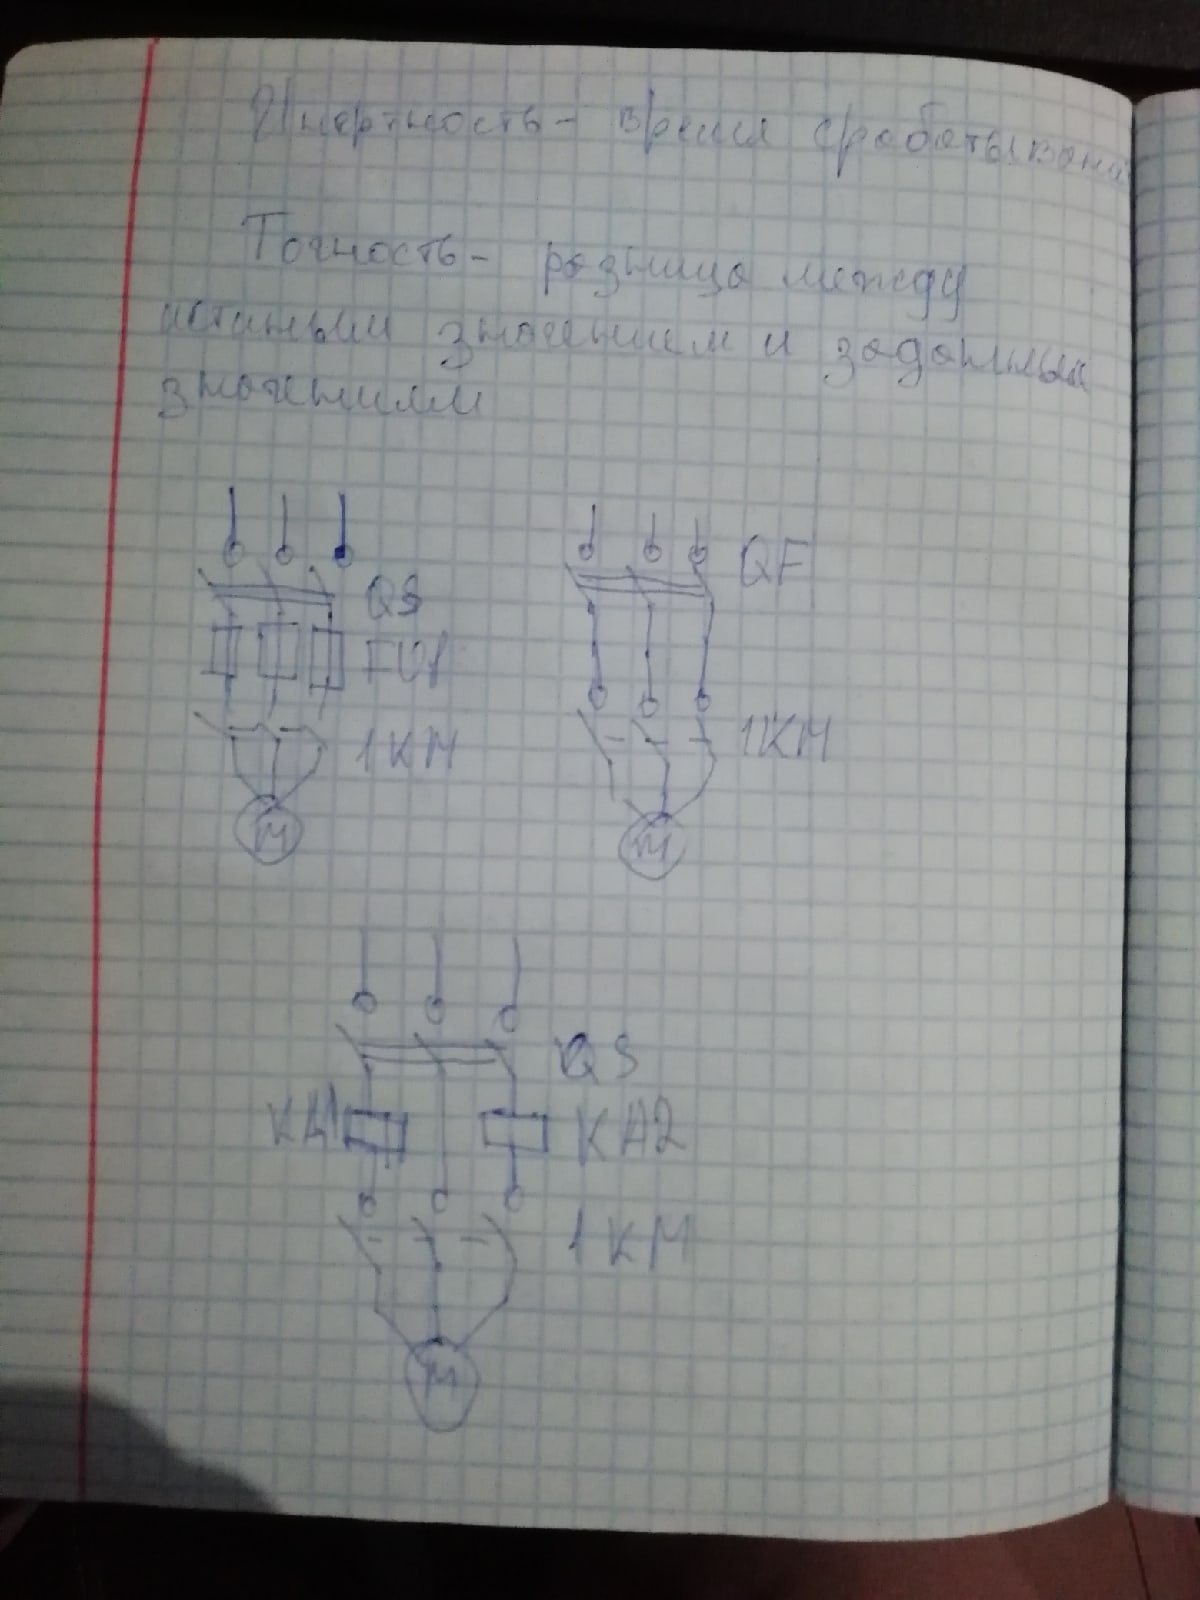 Инертность - время срабатывани
Точность - разница между
истиным значением и заданным
значением
QS
QF
FU1
1КМ
1КМ
М
М
QS
КА1
КА2
1КМ
М